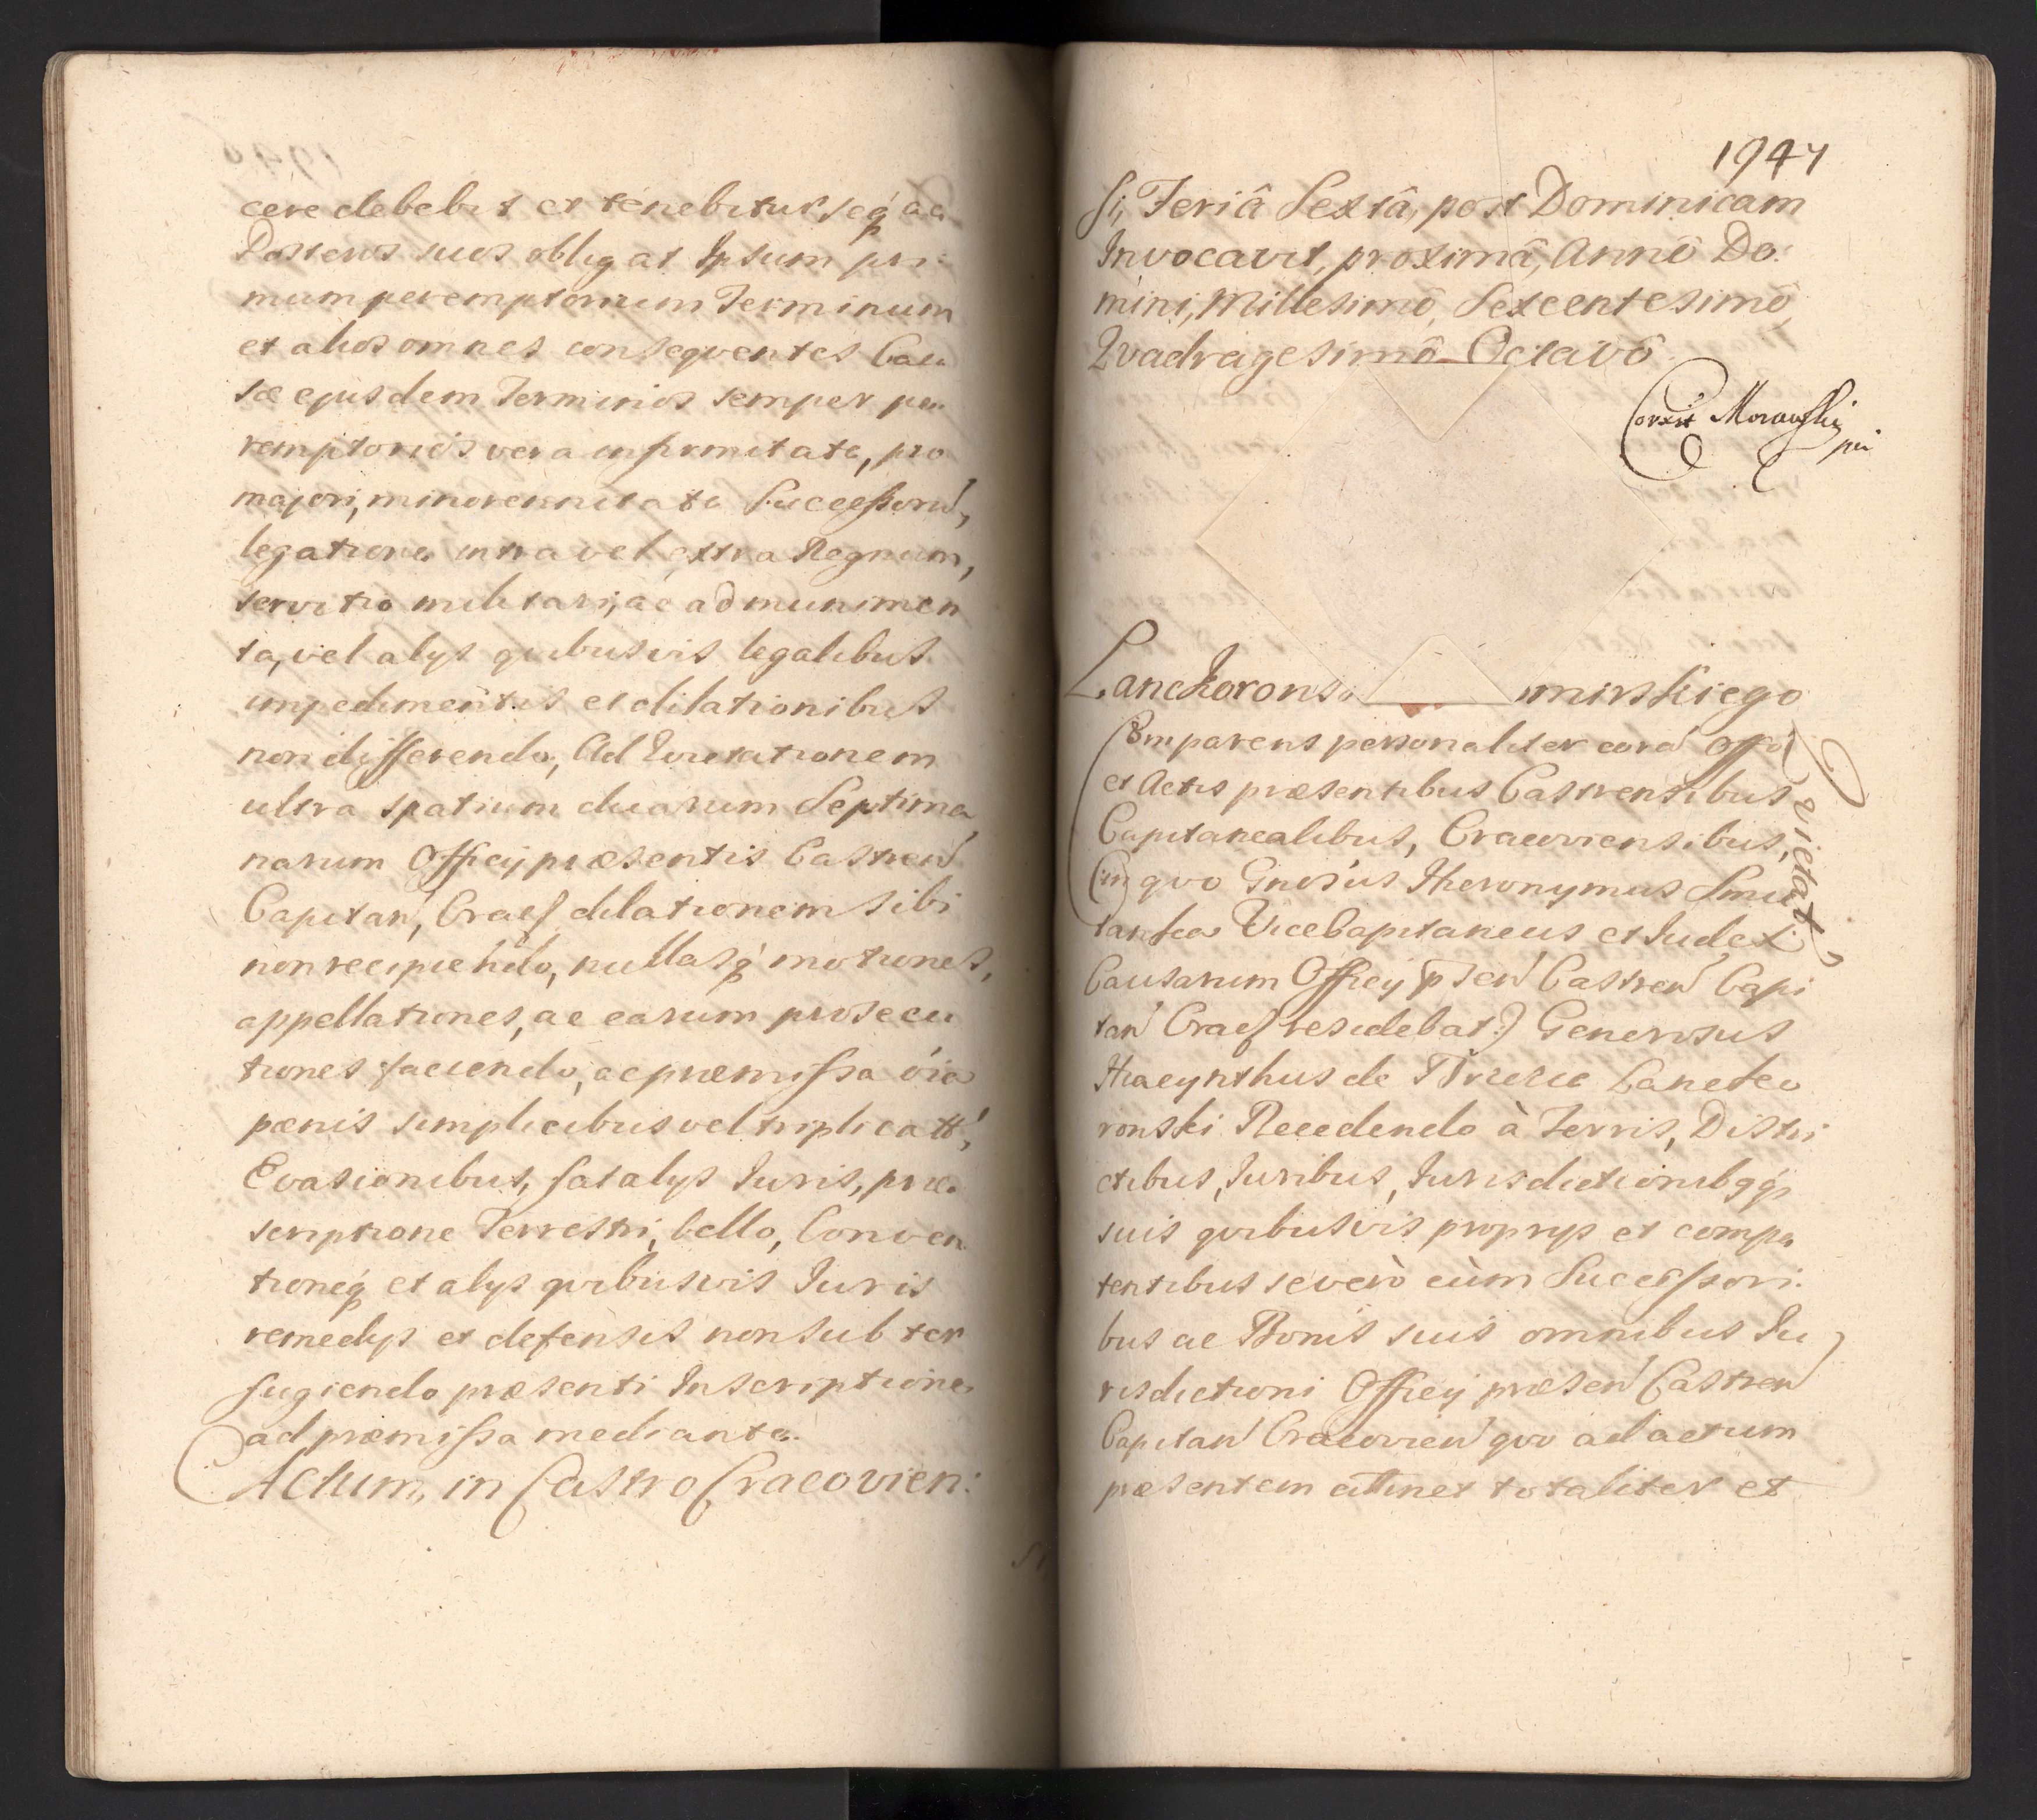 cere debebit et tenebitur seq́ ac
Posteros suos obligat Ipsum pri:
mum peremptorium Terminum
et alios omnes conseqventes Cau
sæ ejusdem Terminos semper pe
remptorios vera infirmitate, pro
majori, minorennitate Successorú,
legatione intra vel extra Regnum,
servitio militari, ac ad munimen
ta, vel alys qvibusvis legalibus
impedimentis et dilationibus
non differendo, Ad
ultra spatium duarum Septima
narum Officy præsentis Castreń
Capitań, Cracͮ dilationem sibi
non recipiendo, nullasq́ motiones,
appellationes, ac earum prosecu
tiones faciendo, ac præmissa óia
pænis simplicibus vel triplicatt́,
Evasionibus, fatalys Iuris, præ
scriptione Terrestri, bello, Conven
tioneq́ et alys qvibusvis Iuris
remedys et defensis non subter
fugiendo præsenti Inscriptione
ad præmissa mediante.
Actum, in Castro Cracovien:
1947
si, Feriâ Sextâ, post Dominicam
Invocavit, proximâ, Annô Do:
mini, Millesimô, Sexcentesimô,
Qvadragesimô Octavô
Corexit Morawski
Lanckorons miṙskiego
Comparens personaliter corá Offó
et Actis præsentibus Castrensibus
Capitanealibus, Cracoviensibus,
(in qvo Gnosús Hieronymus Smie
tanka ViceCapitaneus et Iudex
Causarum Officy pseń Castreń Capi
tań Cracͮ residebat:) Generosus
Hiacynthus de Brzezie Lancko
ronski Recedendo à Terris, Distri
ctibus, Iuribus, Iurisdictionibqq́
suis qvibusvis proprys et compe
tentibus se verò cùm Successori:
bus ac Bonis suis omnibus Iu
risdictioni Officy præseń Castreń
Capitań Cracovień qvo ad actum
præsentem attinet totaliter et
Qvietat,